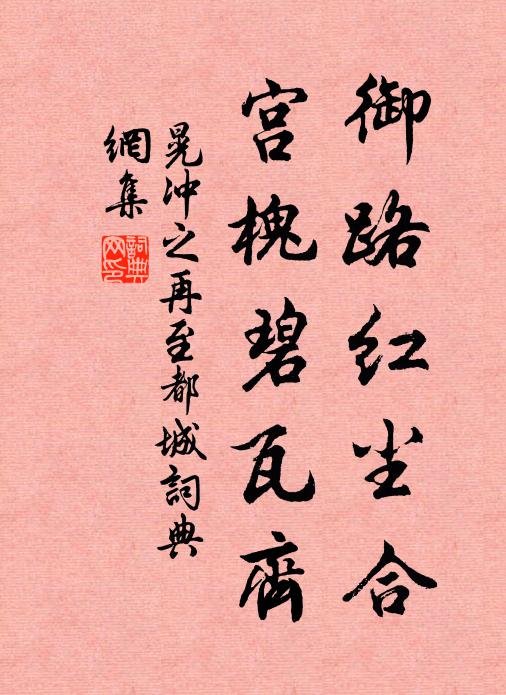 御路红尘合
宫槐碧瓦齊
晁冲之再至都城詞典
網集
詞典
网印